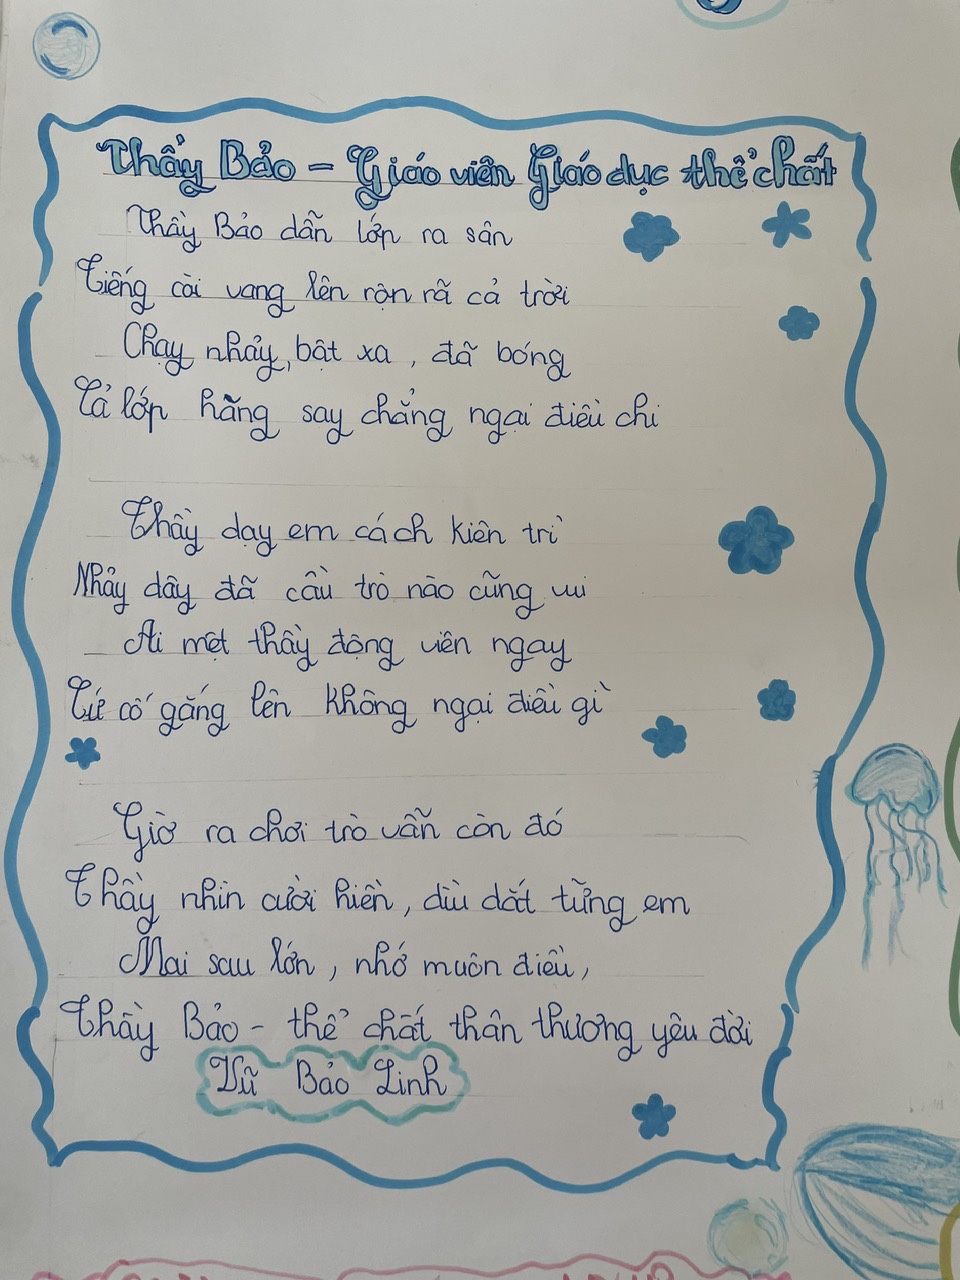 Thầy Bảo - Giáo viên Giáo dục thể chất
Thầy Bảo dẫn lớp ra sân
Tiếng còi vang lên rộn rã cả trời
Chạy nhảy, bật xa, đã bóng
Cả lớp hăng say chẳng ngại điều chi
Thầy dạy em cách kiên trì
Nhảy dây đã cầu trò nào cũng vui
Ai mệt thầy động viên ngay
Cứ cố gắng lên không ngại điều gì
Giờ ra chơi trò vẫn còn đó
Thầy nhìn cười hiền, dìu dắt từng em
Mai sau lớn, nhớ muôn điều,
Thầy Bảo - thể chất thân thương yêu đời
Vũ Bảo Linh